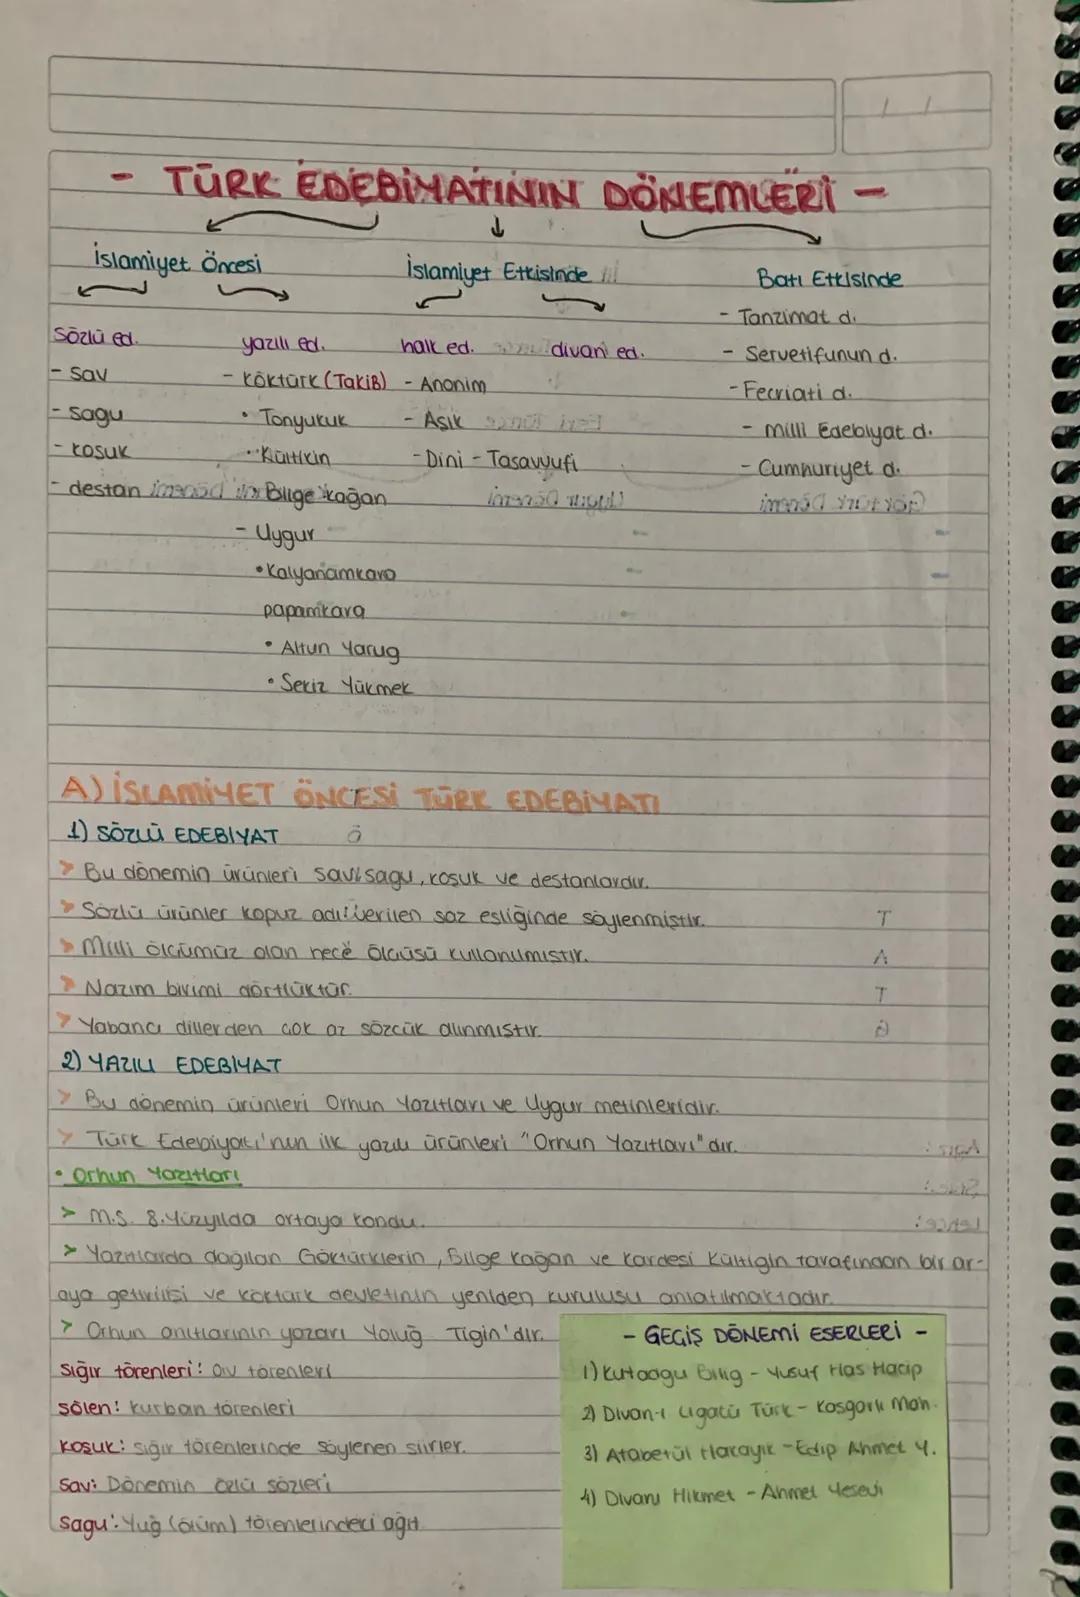 - TÜRK EDEBİYATININ DÖNEMLERİ -
İslamiyet Öncesi
İslamiyet Etkisinde
Batı Etkisinde
Sözlü ed.
yazılı ed.
halk ed.
divan ed.
- Tanzimat d.
- Servetifunun d.
- Fecriati d.
- Milli Edebiyat d.
- Cumhuriyet d.
- sav
- sagu
- koşuk
- destan
- Köktürk (TaKiB)
• Tonyukuk
• Kültikin
Bilge kağan
- Uygur
• Kalyanamkara
papamkara
• Altun Yarug
• Sekiz Yükmek
- Anonim
- Aşık
- Dini - Tasavvufi
A) İSLAMİYET ÖNCESİ TÜRK EDEBİYATI
1) SÖZLÜ EDEBİYAT
> Bu dönemin ürünleri sav, sagu, koşuk ve destanlardır.
> Sözlü ürünler kopuz adı verilen saz eşliğinde söylenmiştir.
> Milli ölçümüz olan hece ölçüsü kullanılmıştır.
> Nazım birimi dörtlüktür.
> Yabancı dillerden çok az sözcük alınmıştır.
2) YAZILI EDEBİYAT
> Bu dönemin ürünleri Orhun Yazıtları ve Uygur metinleridir.
> Türk Edebiyatı'nın ilk yazılı ürünleri "Orhun Yazıtları" dır.
• Orhun Yazıtları
> M.S. 8. Yüzyılda ortaya kondu.
> Yazıtlarda dağılan Göktürklerin, Bilge Kağan ve kardeşi Kültigin tarafından bir ar-
aya getirilişi ve köktürk devletinin yeniden kuruluşu anlatılmaktadır.
> Orhun anıtlarının yazarı Yoluğ Tigin'dir.
Sığır törenleri: av törenleri
şölen: kurban törenleri
koşuk: sığır törenlerinde söylenen şiirler.
Sav: Dönemin özlü sözleri
sagu: Yuğ (ölüm) törenlerindeki ağıt
- GEÇİŞ DÖNEMİ ESERLERİ -
1) Kutadgu Bilig - Yusuf Has Hacip
2) Divan-ı Lügatü Türk - Kaşgarlı Mah.
3) Atabetül Hakayık - Edip Ahmet Y.
4) Divanı Hikmet - Ahmet Yesevi